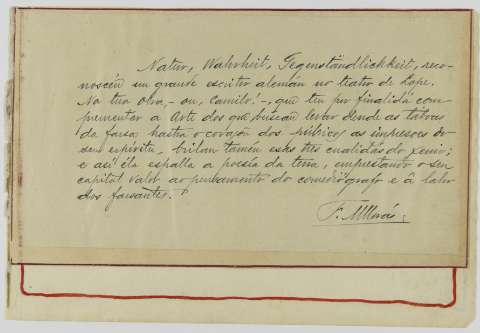 Natur, Wahrheit, Gegenständlichkeit, reco-
noscéu un grande escritor alemán no teatro de Lope.
Na tua obra, — ou, Camilo! —, que ten por finalidá com-
prementar a Arte dos que buscan levar dende as tábras
da farsa hastra o corazón dos púbricos as impresós do
seu espírito, brilan tamén estas tres cualidás do xenio;
e así ela espalla a poesía da terra, emprestando o seu
capital valor ao pensamento do comediógrafo e â labor
dos farsantes.
F.